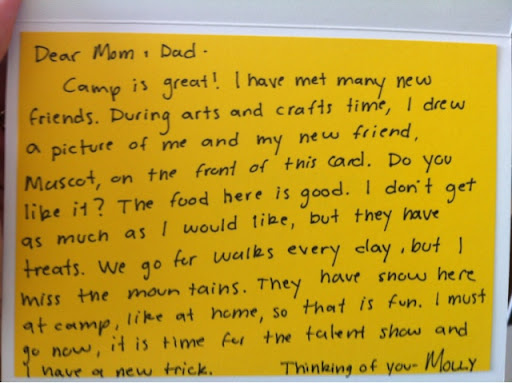 Dear Mom & Dad -
Camp is great! I have met many new
friends. During arts and crafts time, I drew
a picture of me and my new friend,
Muscot, on the front of this card. Do you
like it? The food here is good. I don't get
as much as I would like, but they have
treats. We go for walks every day, but I
miss the mountains. They have snow here
at camp, like at home, so that is fun. I must
go now, it is time for the talent show and
I have a new trick. Thinking of you- MOLLY